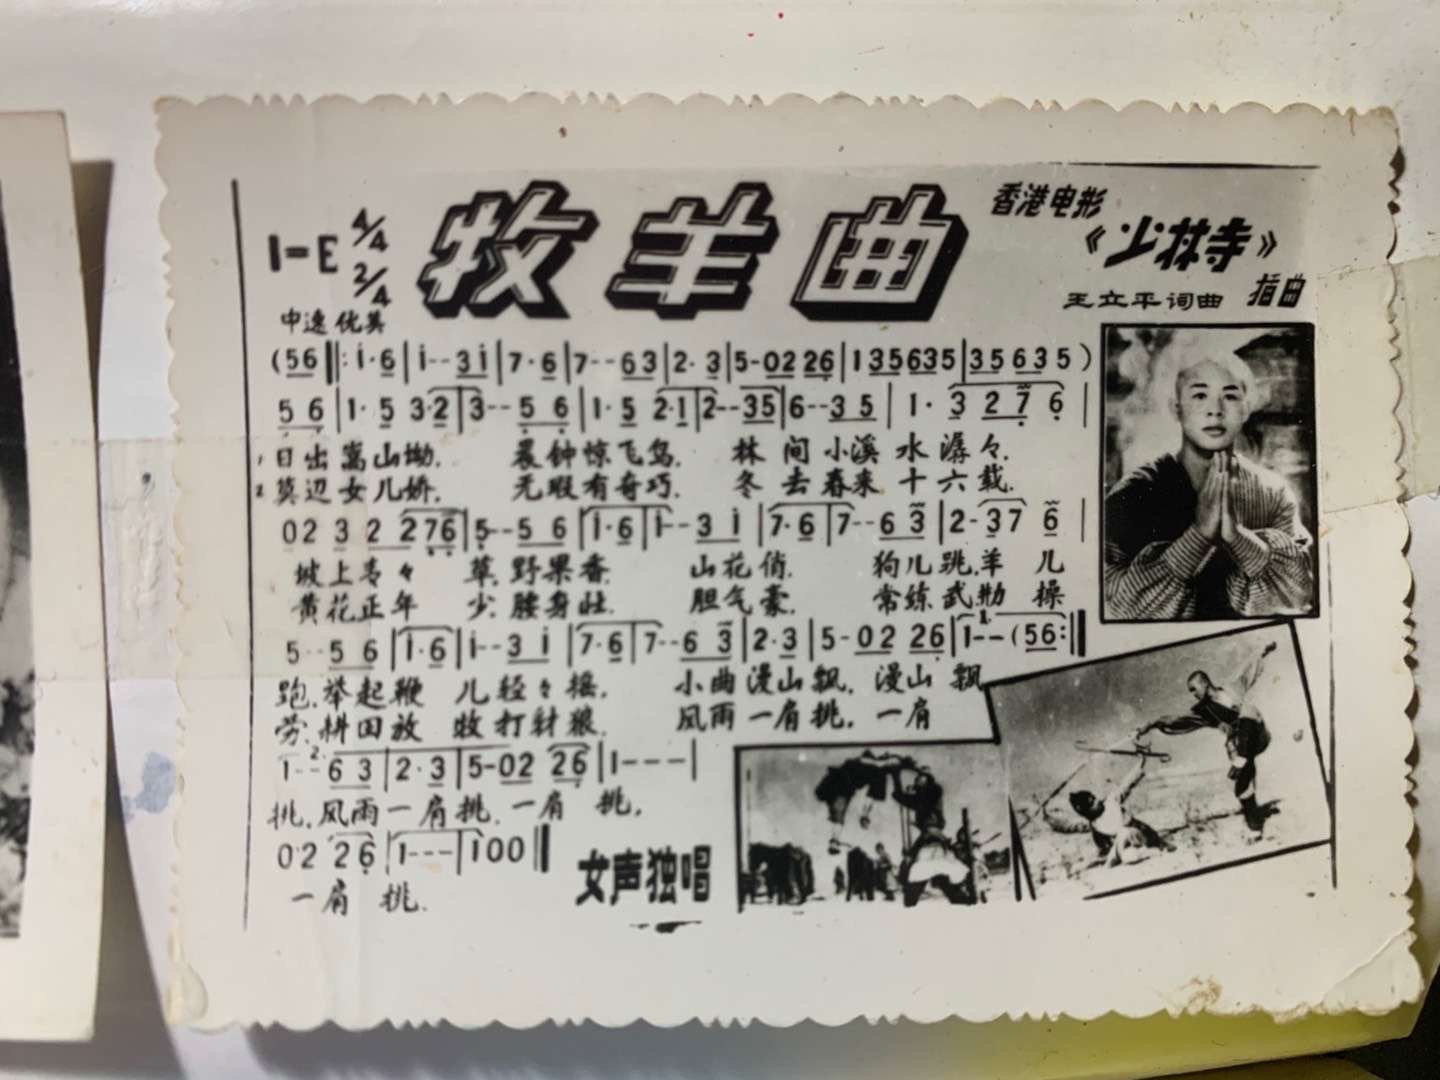 牧羊曲
香港电影
《少林寺》
插曲
王立平词曲
1=E 4/4
2/4
中速 优美
(56‖:i·6|i--3i|7·6|7--63|2·3|5-02 26|135635|35635)
56|1·5 3·2|3--56|1·5 2·1|2--35|6--35|1·3 276|
1日出嵩山坳. 晨钟惊飞鸟. 林间小溪水潺々.
2莫辺女儿娇. 无瑕有奇巧. 冬去春来十六载.
02 3 2 276|5--56|i·6|i--3i|7·6|7--63|2-37 6|
坡上青々草.野果香. 山花俏. 狗儿跳.羊儿
黄花正年少.腰身壮. 胆气豪. 常练武勒操
5--56|i·6|i--3i|7·6|7--63|2·3|5-02 26|1--(56:‖
跑.举起鞭儿轻々摇. 小曲漫山飘. 漫山飘
劳.耕田放牧打豺狼. 风雨一肩挑. 一肩
1--63|2·3|5-02 26|1---|
挑.风雨一肩挑.一肩挑.
02 26|1---|100‖
一肩挑.
女声独唱